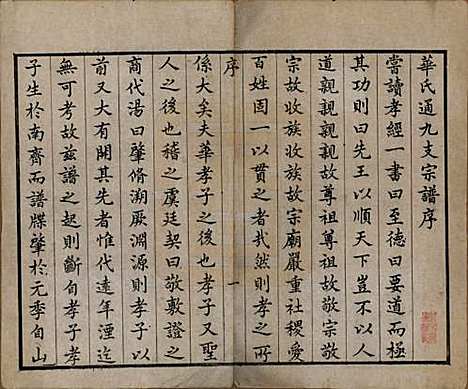 華氏通九支宗譜序
嘗讀孝經一書曰至德曰要道而極
其功則曰先王以順天下豈不以人
道親親親親故尊祖尊祖故敬宗敬
宗故收族收族故宗廟嚴重社稷愛
百姓固一以貫之者哉然則孝之所
序
一
係大矣夫華孝子之後也孝子又聖
人之後也稽之虞廷契曰敬敷證之
商代湯曰肇脩溯厥淵源則孝子以
前又大有開其先者惟代遠年湮迄
無可考故茲譜之起則斷自孝子孝
子生於南齊而譜牒肇於元季自山